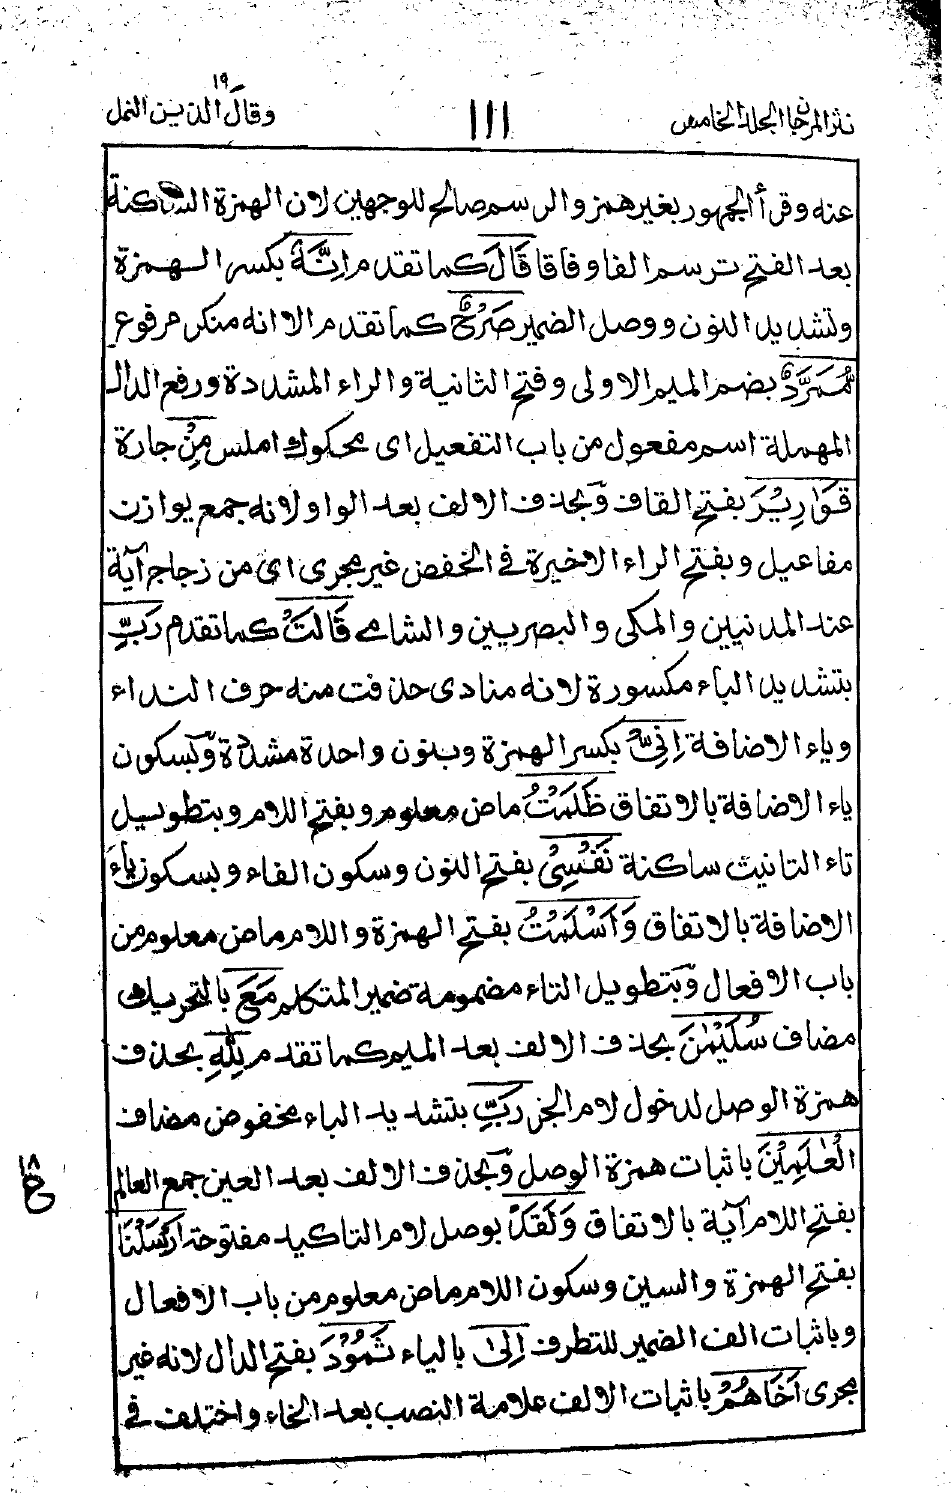 نثر المرجان المجلد الخامس
١١١
وقال الذين ١٩ النمل
عنه وقرأ الجمهور بغير همز والرسم صالح للوجهين لان الهمزة الساكنة
بعد الفتح ترسم الفا وفاقا قَالَ كما تقدم اِنَّهٗ بكسر الهمزة
وتشديد النون ووصل الضمير صَرْحٌ كما تقدم الا انه منكر مرفوع
مُّمَرَّدٌ بضم الميم الاولى وفتح الثانية والراء المشددة ورفع الدال
المهملة اسم مفعول من باب التفعيل اى محكوك املس مِنْ جارة
قَوَارِيْرَ بفتح القاف وبحذف الالف بعد الواو لانه جمع يوازن
مفاعيل وبفتح الراء الاخيرة فى الخفض غير مجرى اى من زجاج آية
عند المدنيين والمكى والبصريين والشامى قَالَتْ كما تقدم رَبِّ
بتشديد الباء مكسورة لانه منادى حذفت منه حرف النداء
وياء الاضافة اِنِّيْ بكسر الهمزة وبنون واحدة مشددة وبسكون
ياء الاضافة بالاتفاق ظَلَمْتُ ماض معلوم وبفتح اللام وبتطويل
تاء التانيث ساكنة نَفْسِيْ بفتح النون وسكون الفاء وبسكون ياء
الاضافة بالاتفاق وَاَسْلَمْتُ بفتح الهمزة واللام ماض معلوم من
باب الافعال وبتطويل التاء مضمومة ضمير المتكلم مَعَ بالتحريك
مضاف سُلَيْمٰنَ بحذف الالف بعد الميم كما تقدم لِلّٰهِ بحذف
همزة الوصل لدخول لام الجر رَبِّ بتشديد الباء مخفوض مضاف
الْعٰلَمِيْنَ باثبات همزة الوصل وبحذف الالف بعد العين جمع العالم
بفتح اللام آية بالاتفاق وَلَقَدْ بوصل لام التاكيد مفتوحة اَرْسَلْنَا
بفتح الهمزة والسين وسكون اللام ماض معلوم من باب الافعال
وباثبات الف الضمير للتطرف اِلٰى بالياء ثَمُوْدَ بفتح الدال لانه غير
مجرى اَخَاهُمْ باثبات الالف علامة النصب بعد الخاء واختلف فى